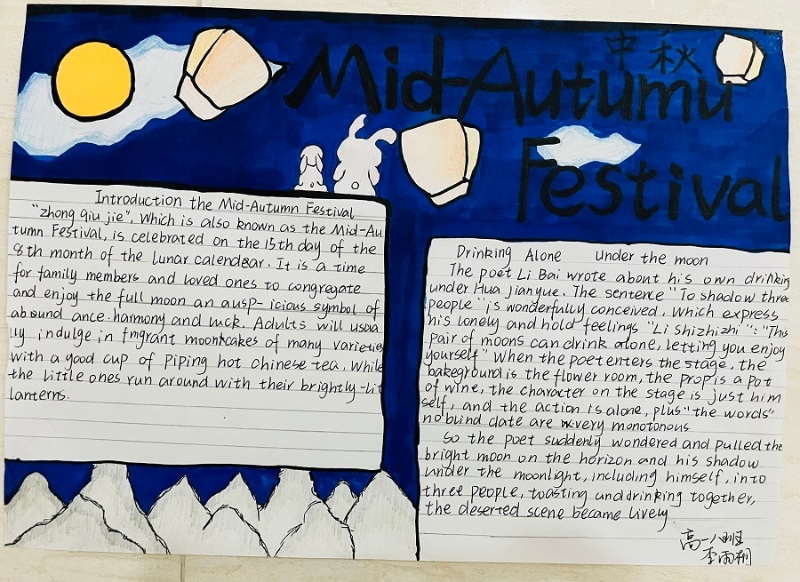 中秋
Mid-Autumn
Festival
Introduction the Mid-Autumn Festival
"zhong qiu jie", which is also known as the Mid-Au
tumn Festival, is celebrated on the 15th day of the
8th month of the lunar calendbar. It is a time
for family members and loved ones to congregate
and enjoy the full moon an ausp-icious symbol of
abound ance.harmony and luck. Adults will usua
lly indulge in fmgrant moonhcakes of many varieties
with a good cup of piping hot chinese tea, while
the little ones run around with their brightly-lit
lanterns.
Drinking Alone Under the moon
The poet Li Bai wrote about his own drinking
under Hua jianyue. The sentence "To shadow three
people" is wonderfully conceived, which express
his lonely and hold feelings "Li shizhizhi": "This
pair of moons can drink alone, letting you enjoy
yourself" When the poet enters the stage, the
bakeground is the flower room, the prop is a pot
of wine, the character on the stage is just him
self, and the action is alone, plus "the words"
no blind date are very monotonous
So the poet suddenly wondered and pulled the
bright moon on the horizon and his shadow
under the moonlight, including himself, into
three people, toasting and drinking together,
the deserted scene became lively.
高一八班
李雨翔